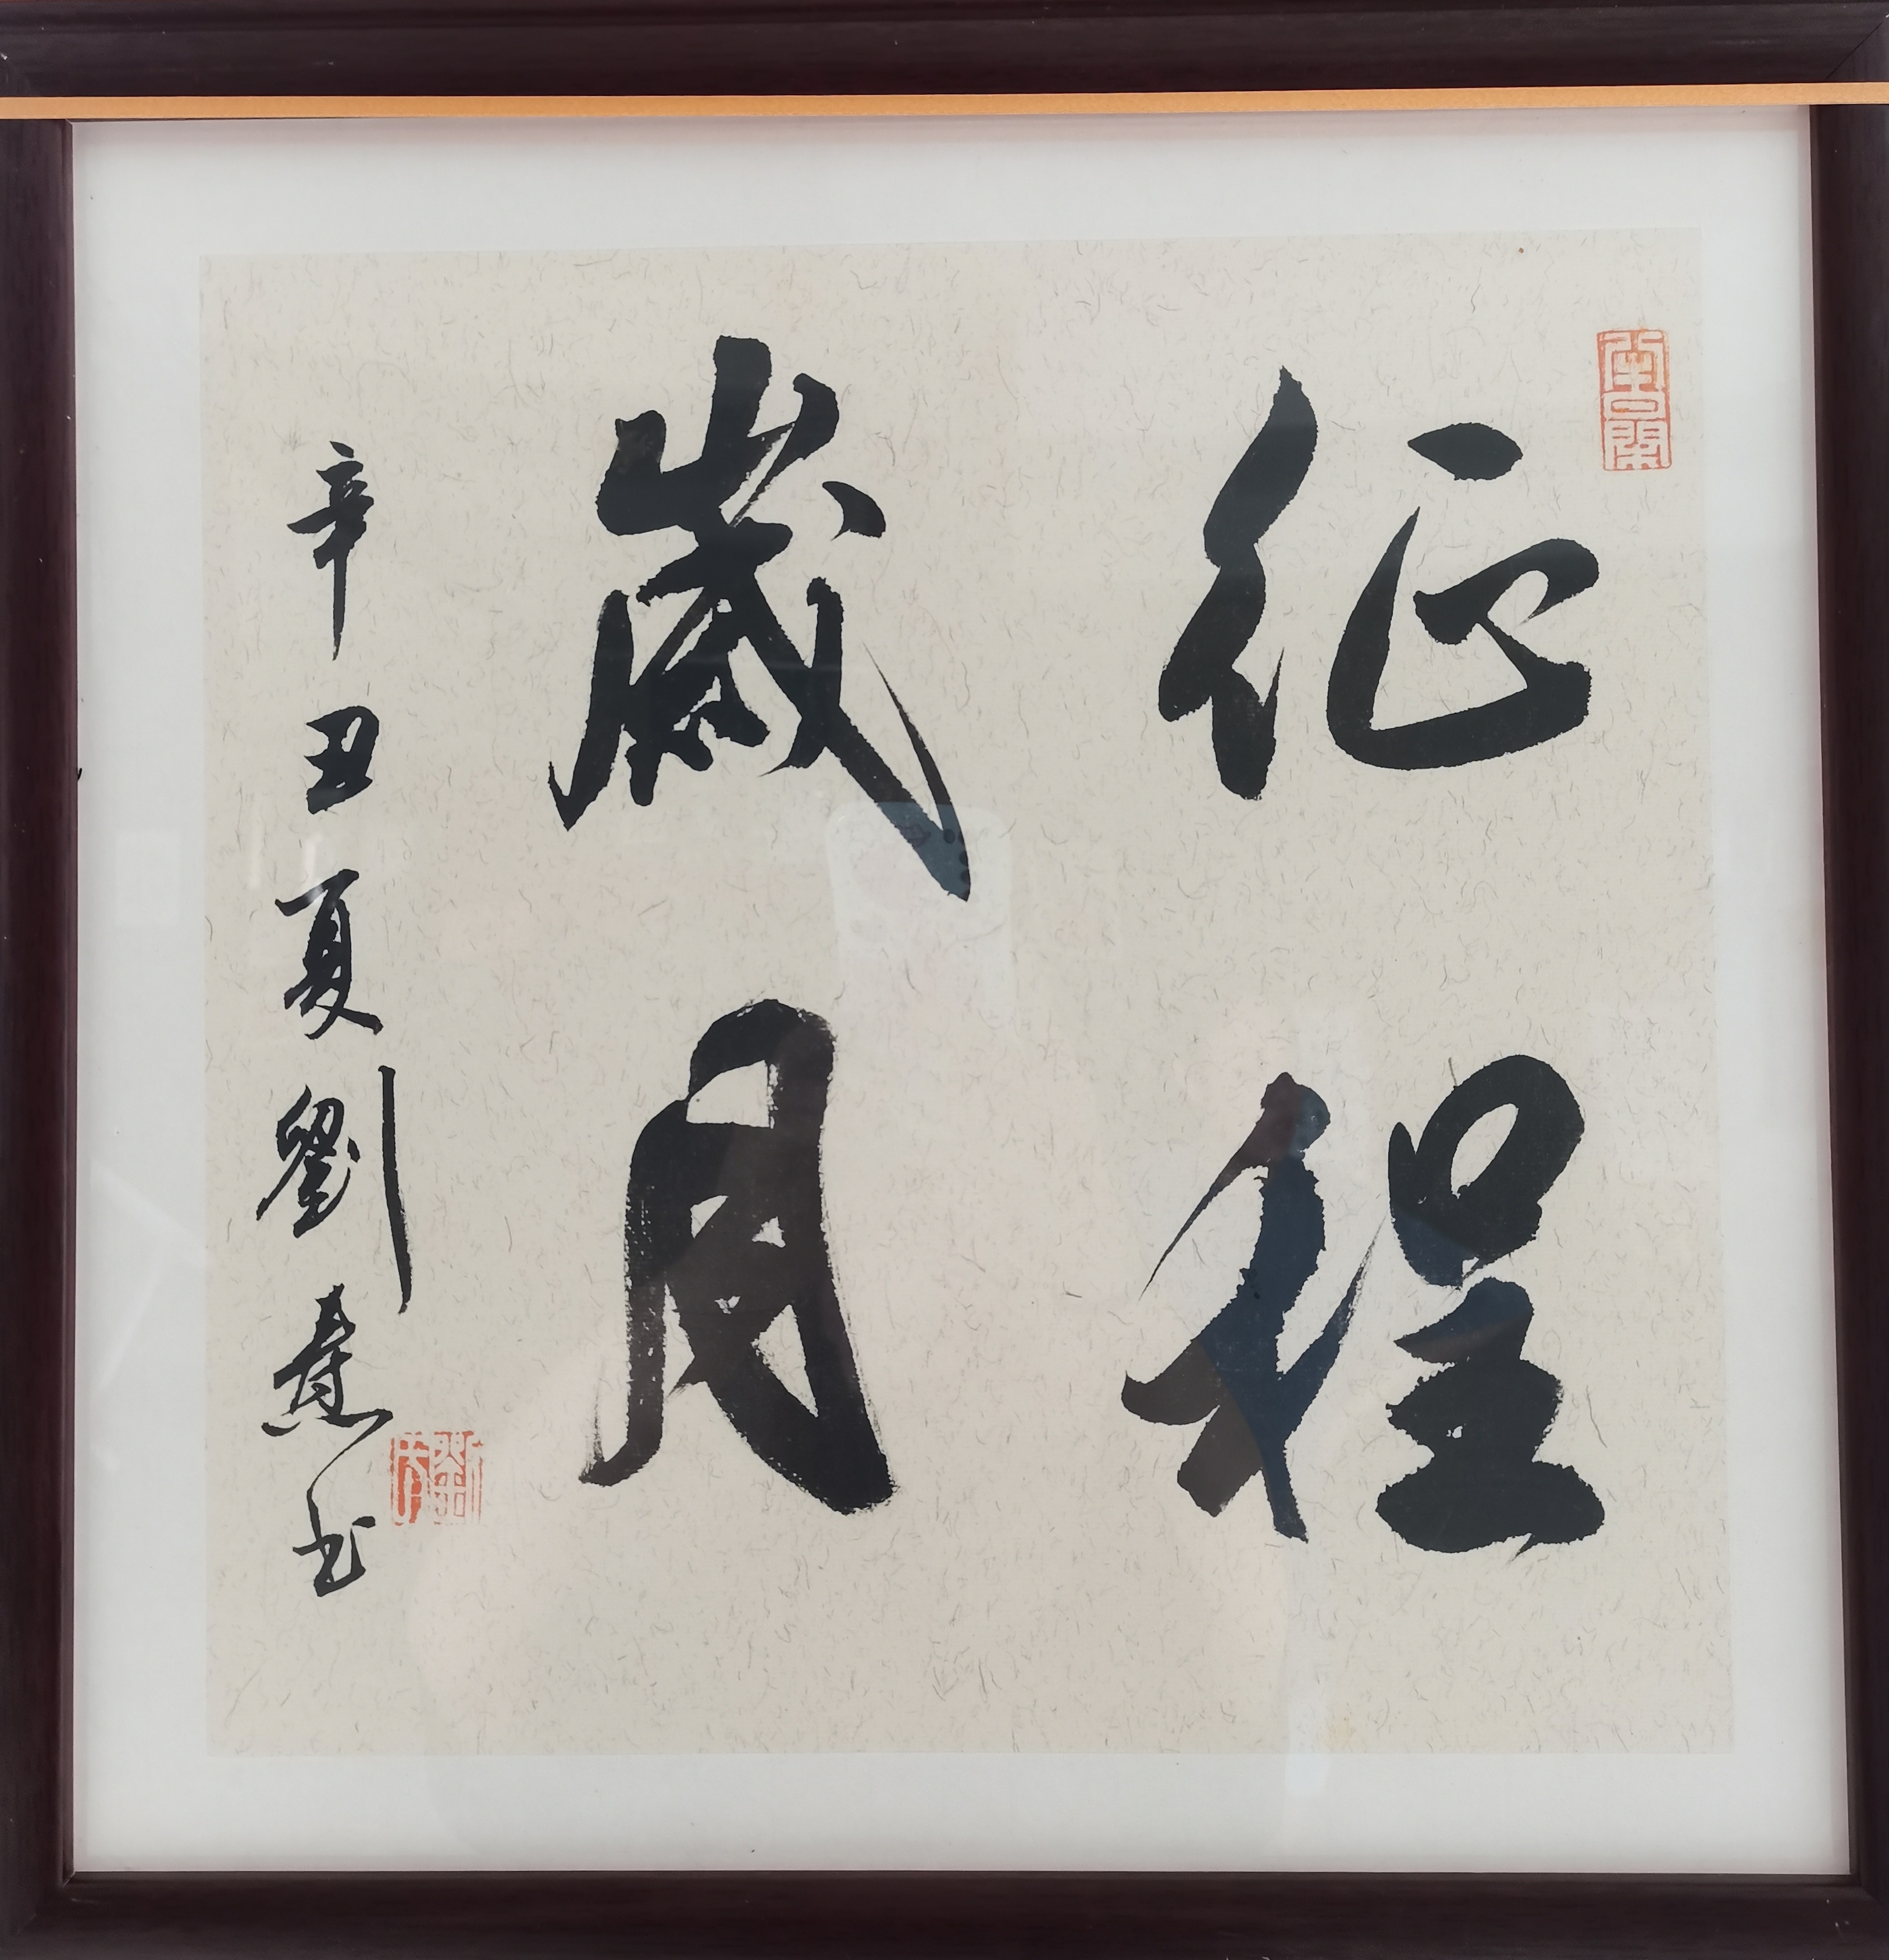 征程
歲月
辛丑夏劉憙书